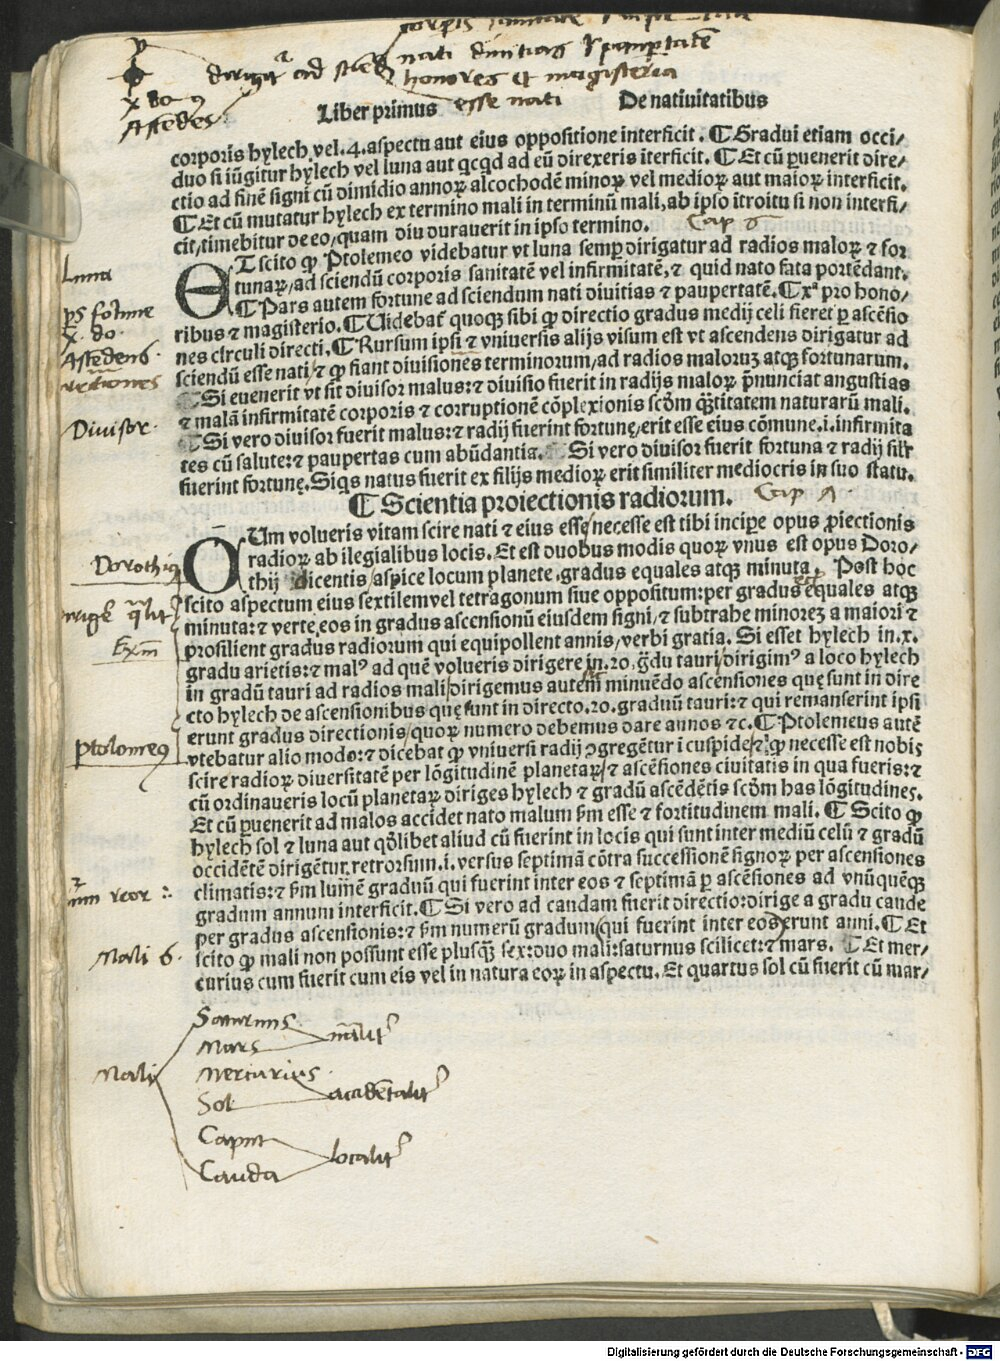 dirigit᷑ ad sciēd
nati diuitias & paupertatē
honores et magisteria
esse nati
X do
Ascēdēs
Liber primus De natiuitatibus
corporis hylech vel .4. aspectu aut eius oppositione interficit . ¶ Gradui etiam occi/
duo si iūgitur hylech vel luna aut qcqd ad eū direxeris īterficit. ¶ Et cū ꝑuenerit dire/
ctio ad finē signi cū dimidio annoꝝ alcochodē minoꝝ vel medioꝝ aut maioꝝ interficit.
¶ Et cū mutatur hylech ex termino mali in terminū mali, ab ipso ītroitu si non interfi/
cit/timebitur de eo/quam diu durauerit in ipso termino. Cap 6
ET scito ꝙ Ptolemeo videbatur vt luna semꝑ dirigatur ad radios maloꝝ ⁊ for
tunaꝝ/ad sciendū corporis sanitatē vel infirmitatē,⁊ quid nato fata portēdant.
¶ Pars autem fortune ad sciendum nati diuitias ⁊ paupertatē. ¶ Xª pro hono/
ribus ⁊ magisterio. ¶ Uidebat᷑ quoqꝫ sibi ꝙ directio gradus medij celi fieret ꝑ ascēsio
nes circuli directi. ¶ Rursum ipsi ⁊ vniuersis alijs visum est vt ascendens dirigatur ad
sciendū esse nati/⁊ ꝙ fiant diuisiones terminorum/ad radios maloruꝫ atqꝫ fortunarum.
¶ Si euenerit vt sit diuisor malus:⁊ diuisio fuerit in radijs maloꝝ p̄nunciat angustias
⁊ malā infirmitatē corporis ⁊ corruptionē cōplexionis scōm q̄titatem naturarū mali.
¶ Si vero diuisor fuerit malus:⁊ radij fuerint fortunę/erit esse eius cōmune .i. infirmita
tes cū salute:⁊ paupertas cum abūdantia. ¶ Si vero diuisor fuerit fortuna ⁊ radij silr̄
fuerint fortunę. Siqs natus fuerit ex filijs medioꝝ erit similiter mediocris in suo statu.
¶ Scientia proiectionis radiorum. Cap
QUm volueris vitam scire nati ⁊ eius esse/necesse est tibi incipe opus ꝓiectionis
radioꝝ ab ilegialibus locis. Et est duobus modis quoꝝ vnus est opus Doro/
thij dicentis/aspice locum planete .gradus equales atqꝫ minuta. Post hoc
scito aspectum eius sextilem vel tetragonum siue oppositum: per gradus equales atqꝫ
minuta:⁊ verte eos in gradus ascensionū eiusdem signi/⁊ subtrahe minoreꝫ a maiori ⁊
prosilient gradus radiorum qui equipollent annis/verbi gratia. Si esset hylech in .x.
gradu arietis:⁊ malꝰ ad quē volueris dirigere in .20. ḡdu tauri/dirigimꝰ a loco hylech
in gradū tauri ad radios mali/dirigemus autem minuēdo ascensiones quę sunt in dire
cto hylech de ascensionibus quę sunt in directo .20. graduū tauri:⁊ qui remanserint ipsi
erunt gradus directionis/quoꝝ numero debemus dare annos ⁊c. ¶ Ptolemeus autē
vtebatur alio modo:⁊ dicebat ꝙ vniuersi radij ꝯgregētur ī cuspide/⁊ ꝙ necesse est nobis
scire radioꝝ diuersitatē per lōgitudinē planetaꝝ/⁊ ascēsiones ciuitatis in qua fueris:⁊
cū ordinaueris locū planetaꝝ diriges hylech ⁊ gradū ascēdētis scōm has lōgitudines.
Et cū ꝑuenerit ad malos accidet nato malum ẜm esse ⁊ fortitudinem mali. ¶ Scito ꝙ
hylech sol ⁊ luna aut qōlibet aliud cū fuerint in locis qui sunt inter mediū celū ⁊ gradū
occidētē dirigētur retrorsum .i. versus septimā cōtra successionē signoꝝ per ascensiones
climatis:⁊ ẜm lumē graduū qui fuerint inter eos ⁊ septimā ꝑ ascēsiones ad vnūquēqꝫ
gradum annum interficit. ¶ Si vero ad caudam fuerit directio:dirige a gradu caude
per gradus ascensionis:⁊ ẜm numerū gradum (qui fuerint inter eos) erunt anni. ¶ Et
scito ꝙ mali non possunt esse plusq̄ sex:duo mali:saturnus scilicet:⁊ mars. ¶ Et mer/
curius cum fuerit cum eis vel in natura eoꝝ in aspectu. Et quartus sol cū fuerit cū mar/
Luna
ps fortune
X. do.
Ascēdens.
Diuisor.
Dorothiꝰ
Exm̄
Ptolomeꝰ
Mali 6.
Mali
Saturnus
Mars
Mercurius
Sol
accidētalit᷑
Caput
Cauda
localit᷑
Digitalisierung gefördert durch die Deutsche Forschungsgemeinschaft - DFG